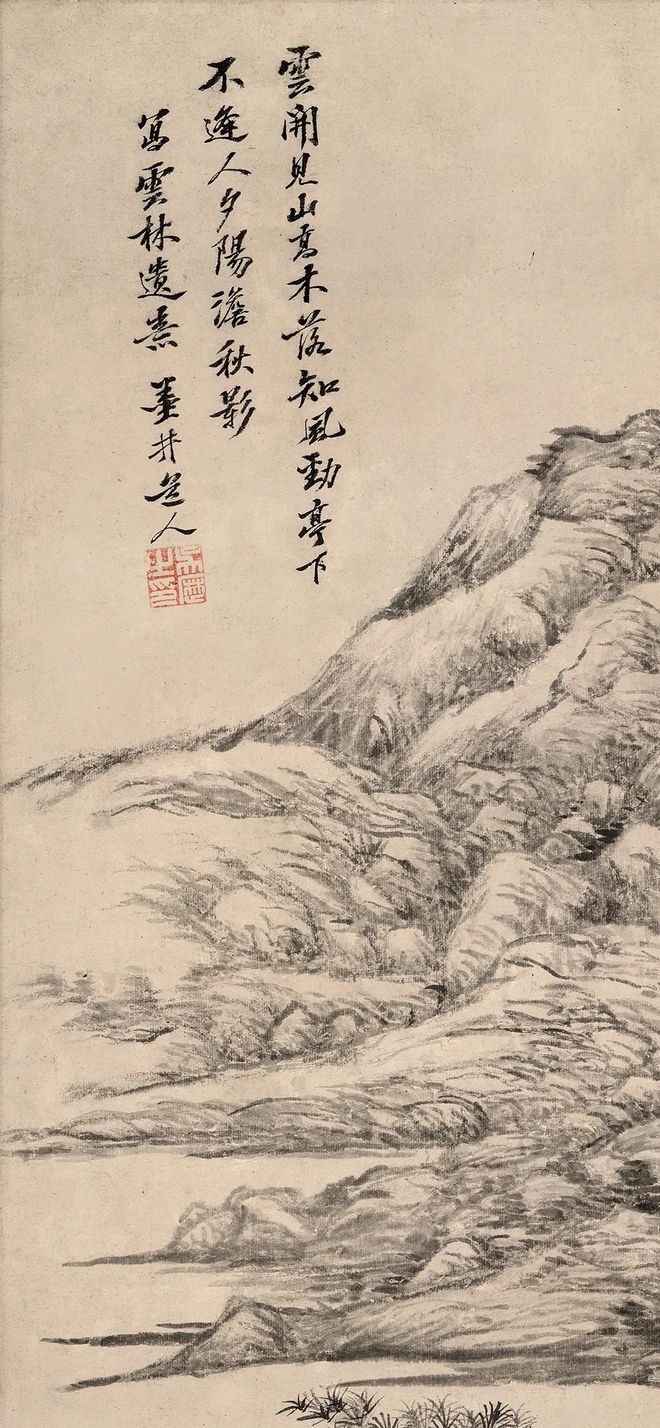 雲開見山高木落知風勁亭下
不逢人夕陽澹秋影
寫雲林遺意 墨井道人
吳歷之印